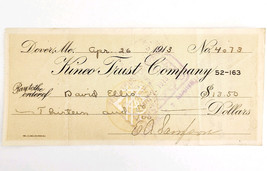 Dover, Me. Apr. 26 1913 No. 4073
Kineo Trust Company 52-163
Pay to the order of David Ellis $13.50
Thirteen and Dollars